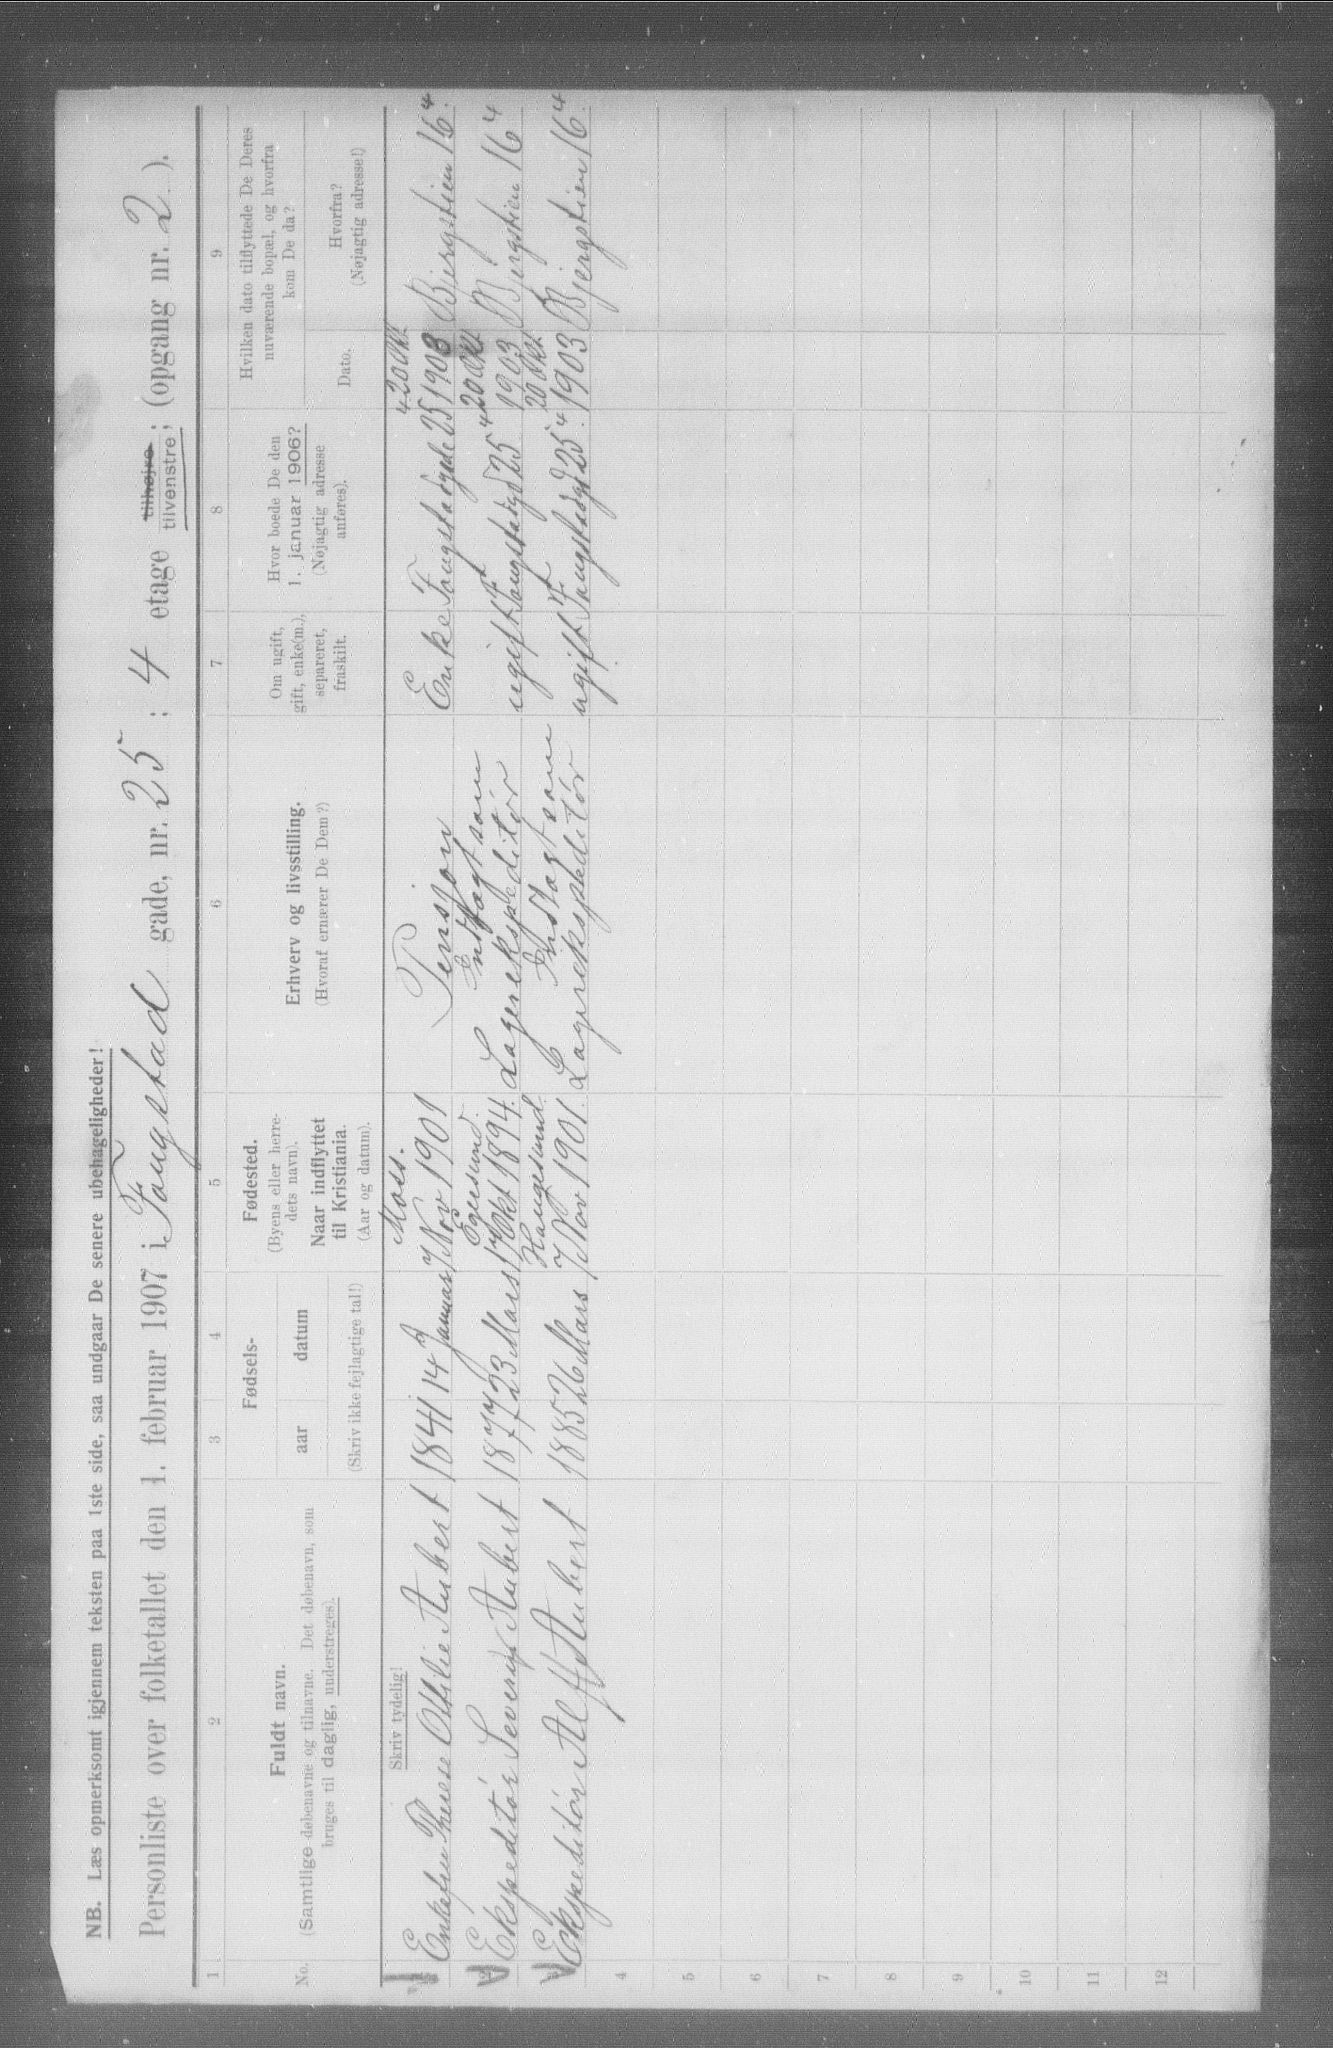 NB. Læs opmerksomt igjennem teksten paa 1ste side, saa undgaar De senere ubehageligheder!
Personliste over folketallet den 1. februar 1907 i Fougstad gade, nr. 25 ; 4 etage tilhøjre tilvenstre ; (opgang nr. 2 ).
1 2 3 4 5 6 7 8 9
No.
Fuldt navn.
(Samtlige døbenavne og tilnavne. Det døbenavn, som
bruges til daglig, understreges).
Fødsels-
aar datum
(Skriv ikke fejlagtige tal!)
Fødested.
(Byens eller herre-
dets navn).
Naar indflyttet
til Kristiania.
(Aar og datum).
Erhverv og livsstilling.
(Hvoraf ernærer De Dem?)
Om ugift,
gift, enke(m.),
separeret,
fraskilt.
Hvor boede De den
1. januar 1906?
(Nøjagtig adresse
anføres).
Hvilken dato tilflyttede De Deres
nuværende bopæl, og hvorfra
kom De da?
Dato.
Hvorfra?
(Nøjagtig adresse!)
Skriv tydelig!
Moss. 20 Okt
Enkefru Therese Ottilie Aubert 1841 14 Januar 7 Nov 1901 Pensjon Enke Fougstadgade 25 4 1903 Bjergstien 16 4
Egersund. Indtægt som 20 Okt
Ekspeditør Severin Aubert 1877 23 Mars 17 Okt 1894. Lagerekspeditør ugift Fougstadgd 25 4 1903 Bjergstien 16 4
Haugesund. Indtægt som 20 Okt
Ekspeditør Alf Aubert 1885 26 Mars 7 Nov 1901. Lagerekspeditør ugift Fougstadgd 25 4. 1903 Bjergstien 16 4
4
5
6
7
8
9
10
11
12